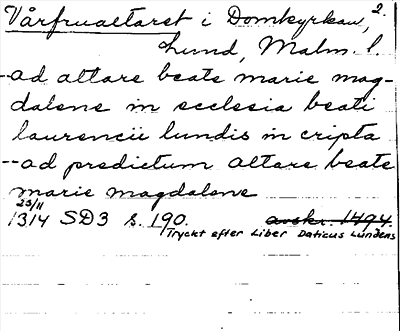 Vårfrualtaret i Domkyrkan, 2.
Lund, Malm. l.
--ad altare beate marie mag-
dalene in ecclesia beati
laurencii lundis in cripta
--ad predictum altare beate
marie magdalene
25/11
1314 SD3 s. 190. avskr. 1494.
Tryckt efter Liber Daticus Lundens